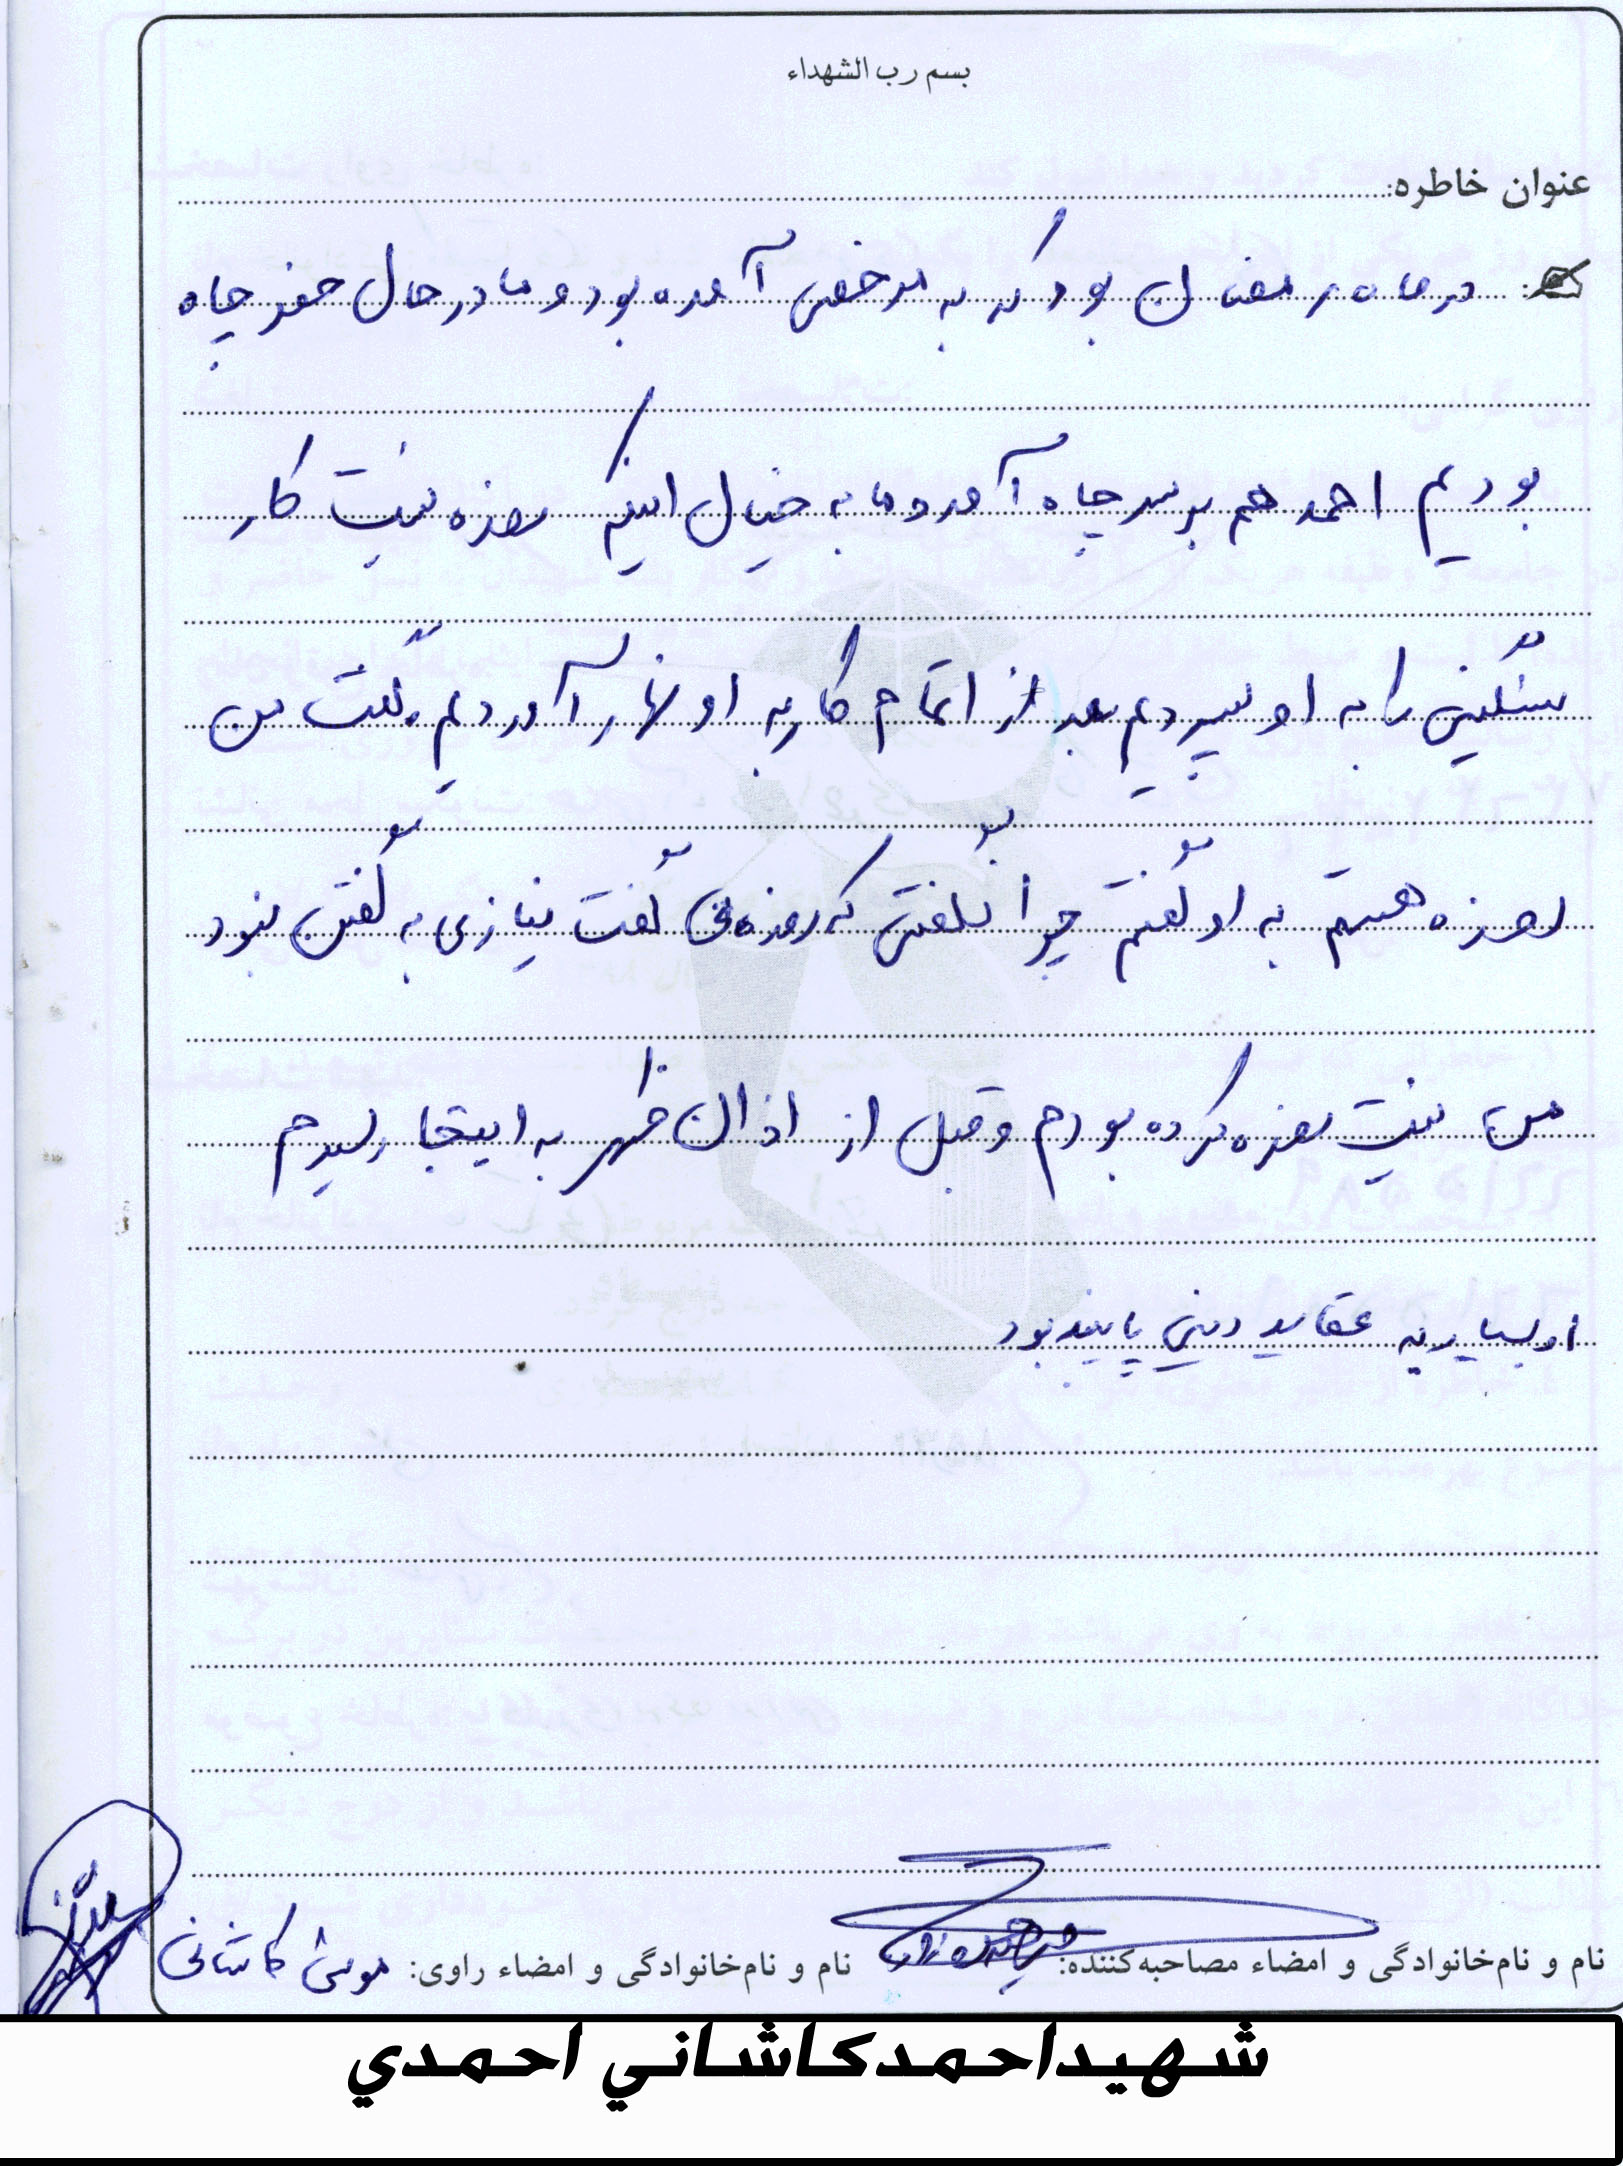 بسم رب الشهداء
عنوان خاطره:
در ماه رمضان بود که به مرخصی آمده بود و ما در حال حفر چاه
بودیم احمد هم بر سر چاه آمد و ما به خیال اینکه روزه نیست کار
سنگینی را به او سپردیم بعد از اتمام کار به او نهار آوردیم، گفت من
روزه هستم به او گفتم چرا نگفتی که روزه‌ای گفت نیازی به گفتن نبود
من نیت روزه کرده بودم و قبل از اذان ظهر به اینجا رسیدم
او بسیار به عقاید دینی پایبند بود
نام و نام‌خانوادگی و امضاء مصاحبه‌کننده: نام و نام‌خانوادگی و امضاء راوی: موسی کاشانی
شهیداحمدکاشاني احمدي